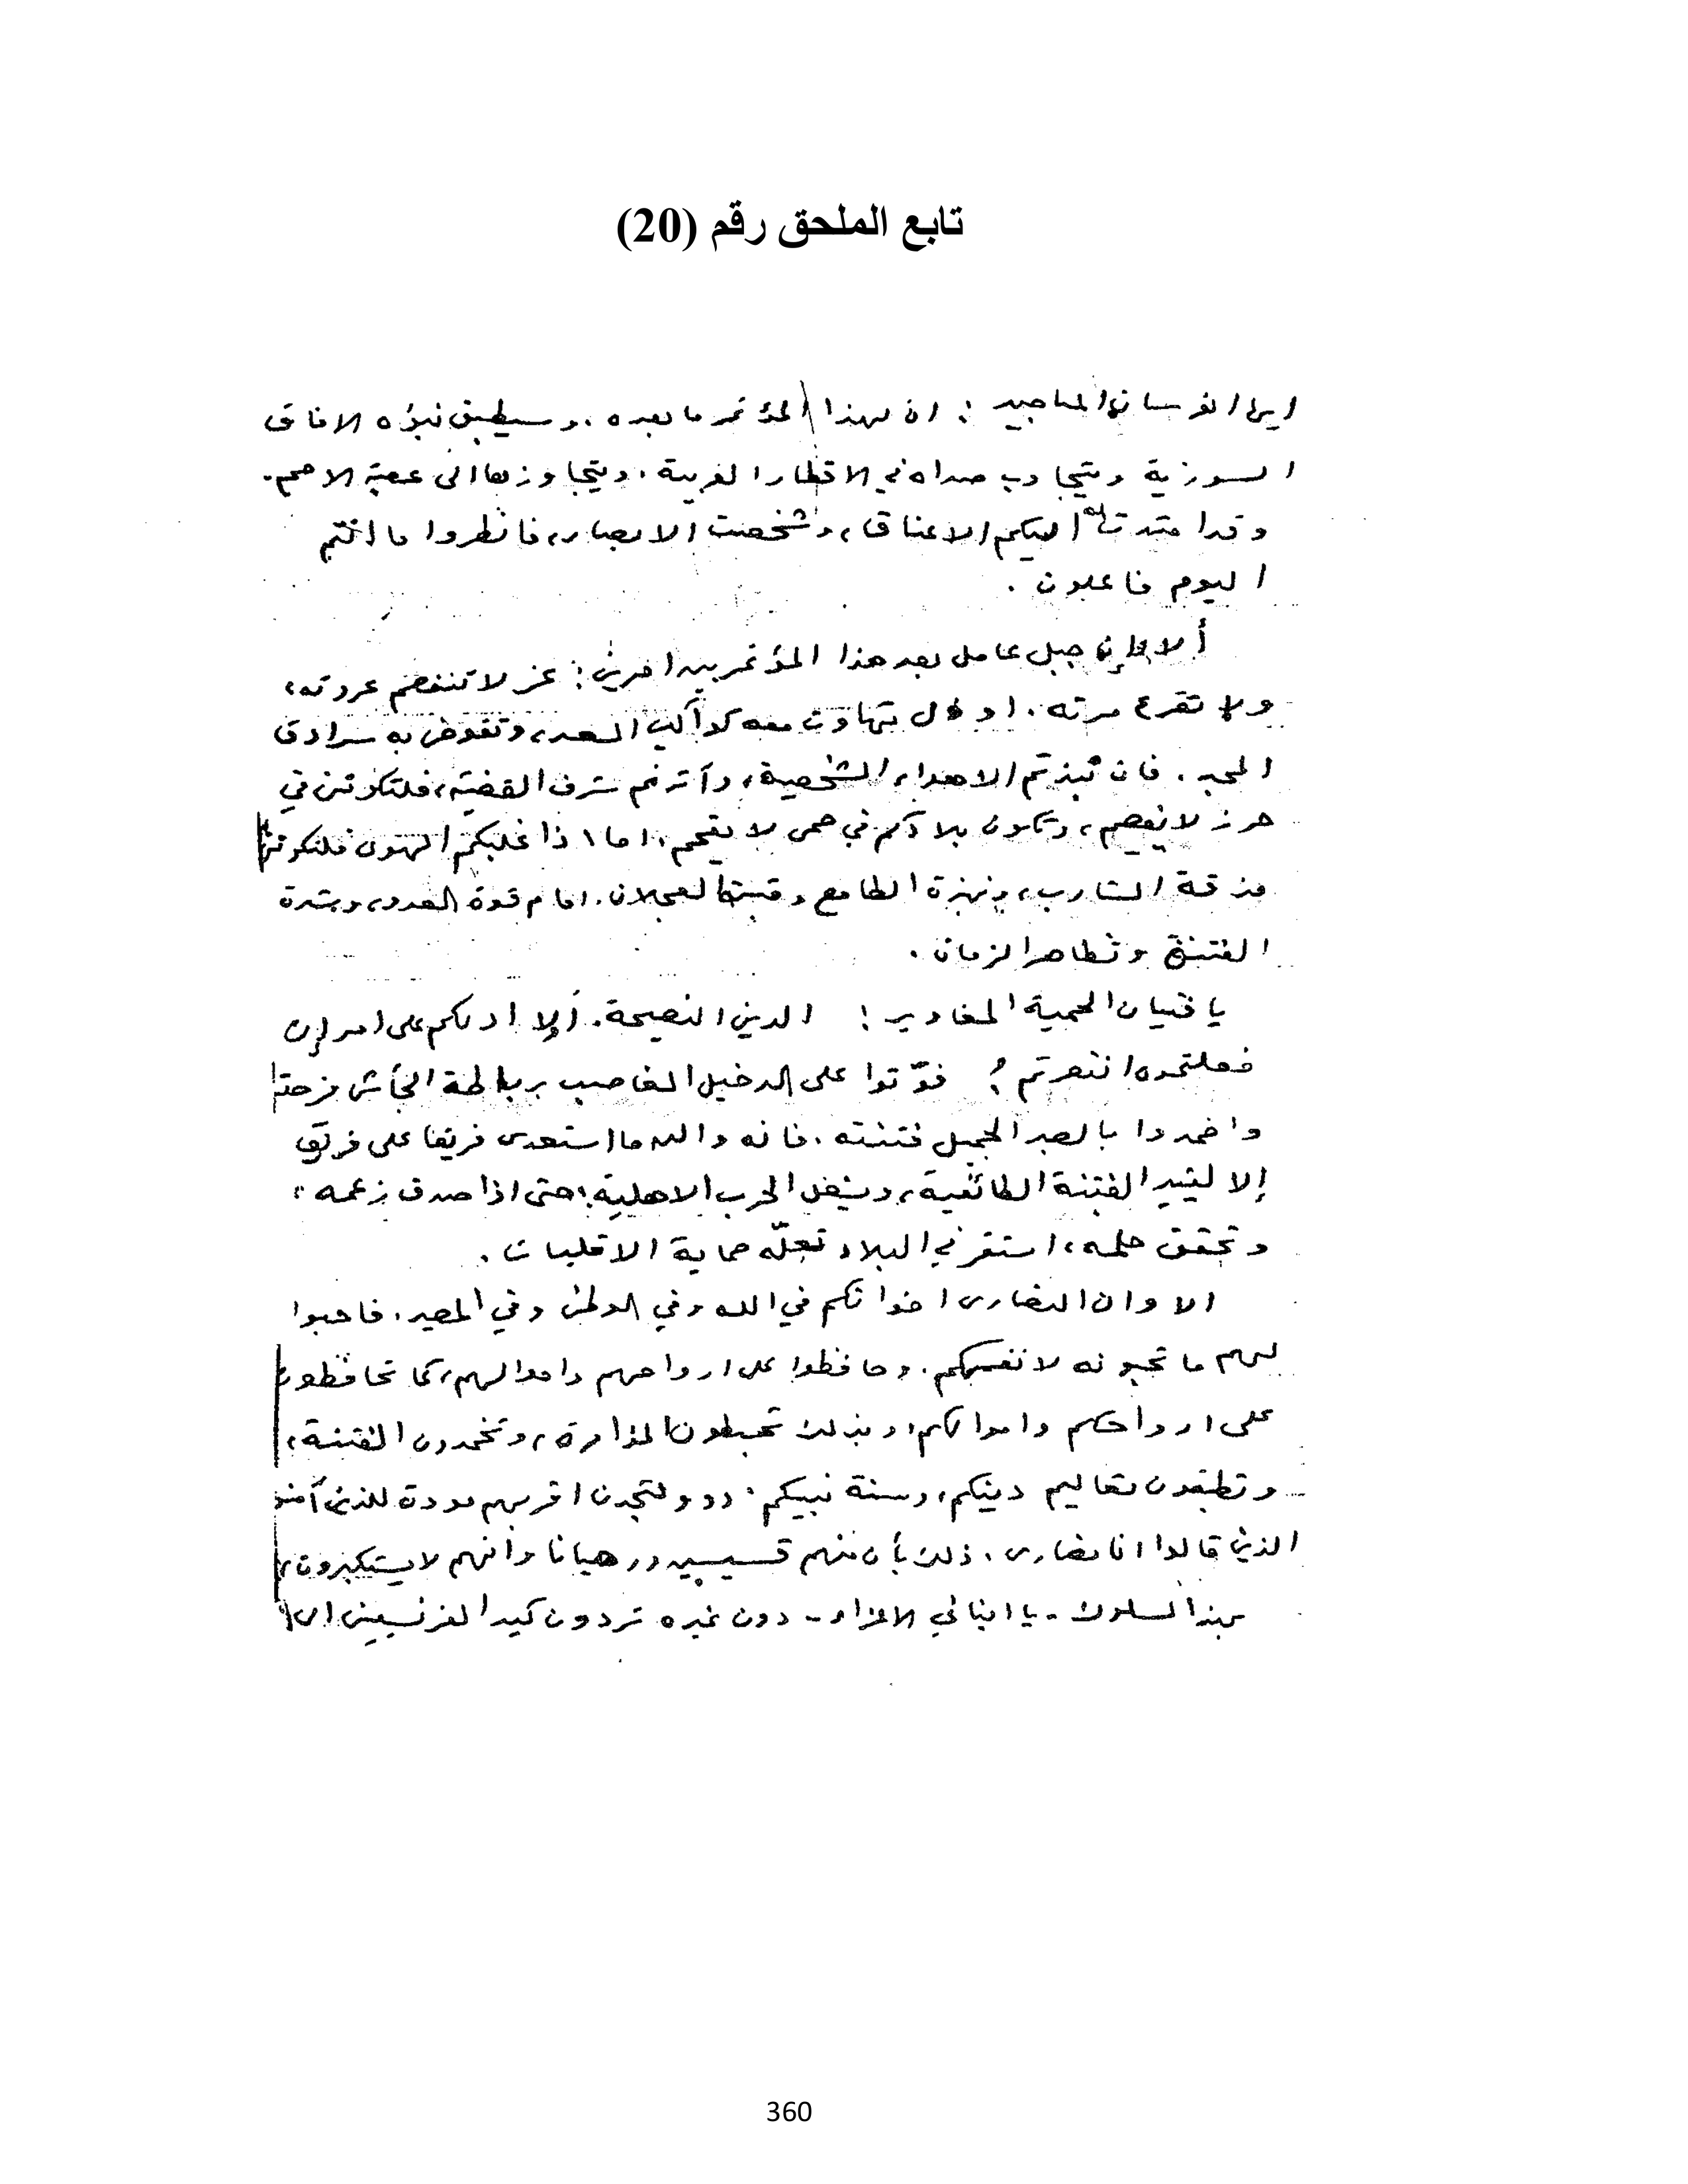 تابع الملحق رقم (20)
ايها الفرسان المناجيد : ان لهذا المؤتمر ما بعده . وسيطبق نبؤه الافاق
السورية ويتجاوب صداه في الاقطار العربية ، ويتجاوزها الى عصبة الامم .
وقد امتدت اليكم الاعناق ، وشخصت الابصار ، فانظروا ما انتم
اليوم فاعلون .
ألا وإن جبل عامل بعد هذا المؤتمر بين امرين : عز لا تنفصم عروته ،
ولا تقرع مروته . او ذل تتهاوى معه كواكب السعد ، وتقوض به سرادق
المجد . فان نبذتم الاهواء الشخصية ، وآثرتم شرف القضية ، فلتكونن في
حرز لا يفصم ، وتكون بلادكم في حمى لا يقحم ، اما اذا غلبكم الهوى فلتكونن
مذقة الشارب ، ونهزة الطامع وقبسة العجلان . امام قوة العدو ، وشدة
الفتنة وتظاهر الزمان .
يا فتيان الحمية المغاوير ! الدين النصيحة . ألا ادلكم على امر إن
فعلتموه انتصرتم ؟ فوّتوا على الدخيل الغاصب برباطة الجأش فرصته
واخمدوا بالصبر الجميل فتنته . فانه والله ما استعدى فريقا على فريق
إلا ليثير الفتنة الطائفية ، ويشعل الحرب الاهلية ، حتى اذا صدق زعمه ،
وتحقق حلمه ، استقر في البلاد تعلّة حماية الاقليات .
الا وان النصارى اخوانكم في الله وفي الوطن وفي المصير . فاحبوا
لهم ما تحبونه لانفسكم . وحافظوا على ارواحهم واموالهم ، كما تحافظون
على ارواحكم واموالكم ، وبذلك تحبطون المؤامرة ، وتخمدون الفتنة ،
وتطبقون تعاليم دينكم ، وسنة نبيكم . وو ولتجدن اقربهم مودة للذين آمنوا
الذين قالوا انا نصارى . ذلك بأن منهم قسيسين ورهبانا وأنهم لا يستكبرون ،،
بهذا السلوك - يا ابنائي الاعزاء - دون غيره تردون كيد الفرنسيين
360